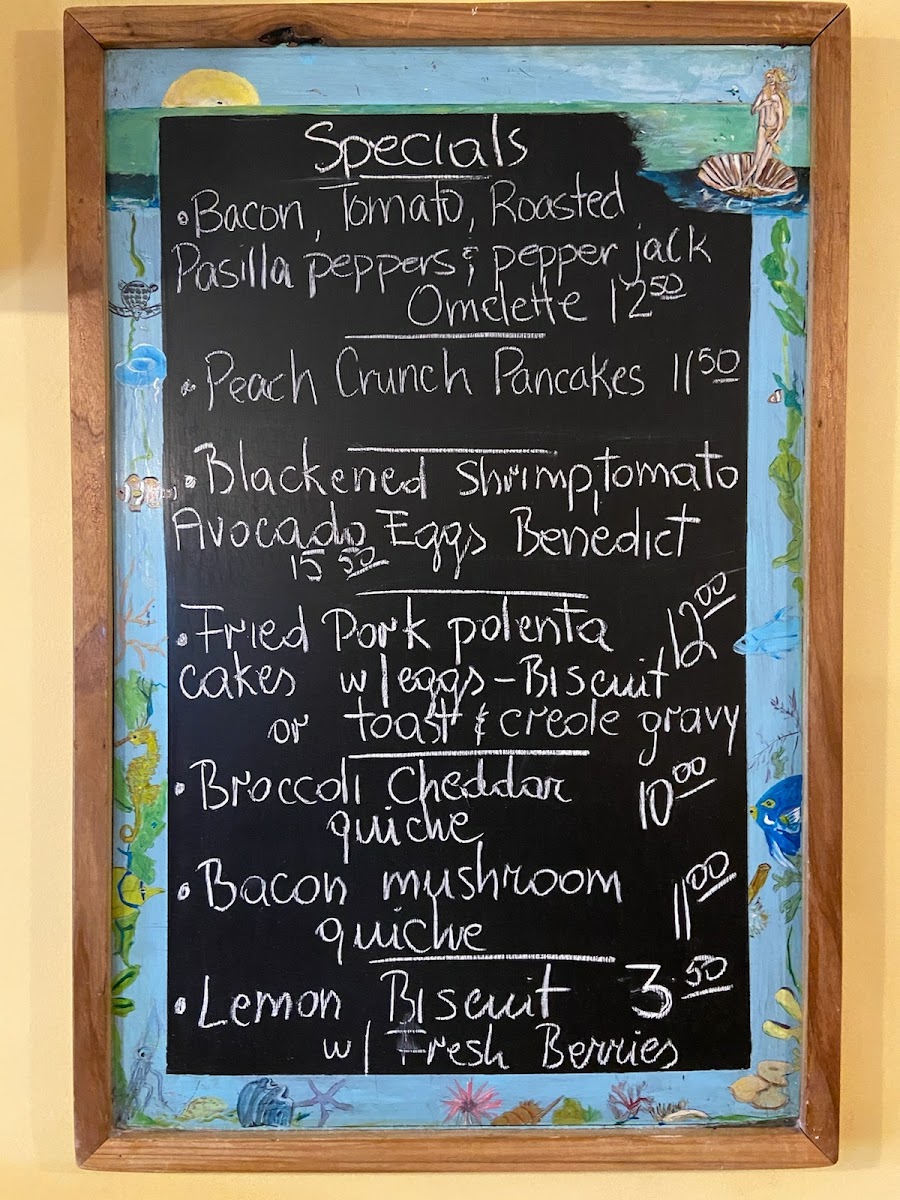 Specials
• Bacon, Tomato, Roasted
Pasilla peppers & pepper jack
Omelette 12 50
• Peach Crunch Pancakes 11 50
• Blackened shrimp, tomato
Avocado Eggs Benedict
15 50
• Fried Pork polenta 12 00
cakes w/ eggs - Biscuit
or toast & creole gravy
• Broccoli cheddar 10 00
quiche
• Bacon mushroom 11 00
quiche
• Lemon Biscuit 3 50
w/ Fresh Berries